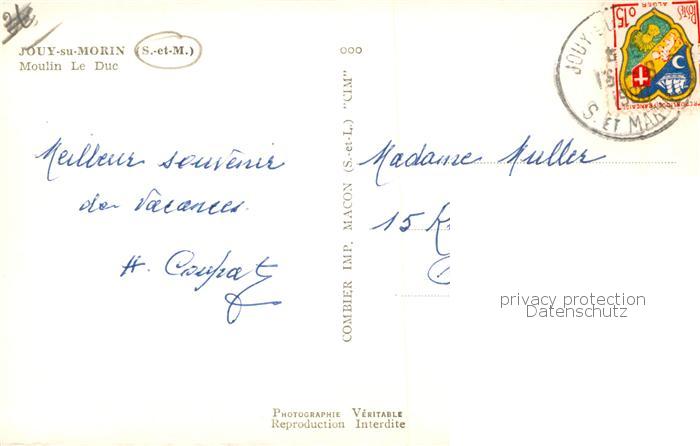 3€
JOUY-su-MORIN (S.-et-M.)
Moulin Le Duc
Meilleur souvenir
de vacances.
H. Coupat
COMBIER IMP. MACON (S.-et-L.) "CIM"
Madame Muller
15
0,15
Postes
ALGER
REPUBLIQUE FRANÇAISE
JOUY
S. ET MAR
privacy protection
Datenschutz
PHOTOGRAPHIE VÉRITABLE
Reproduction Interdite